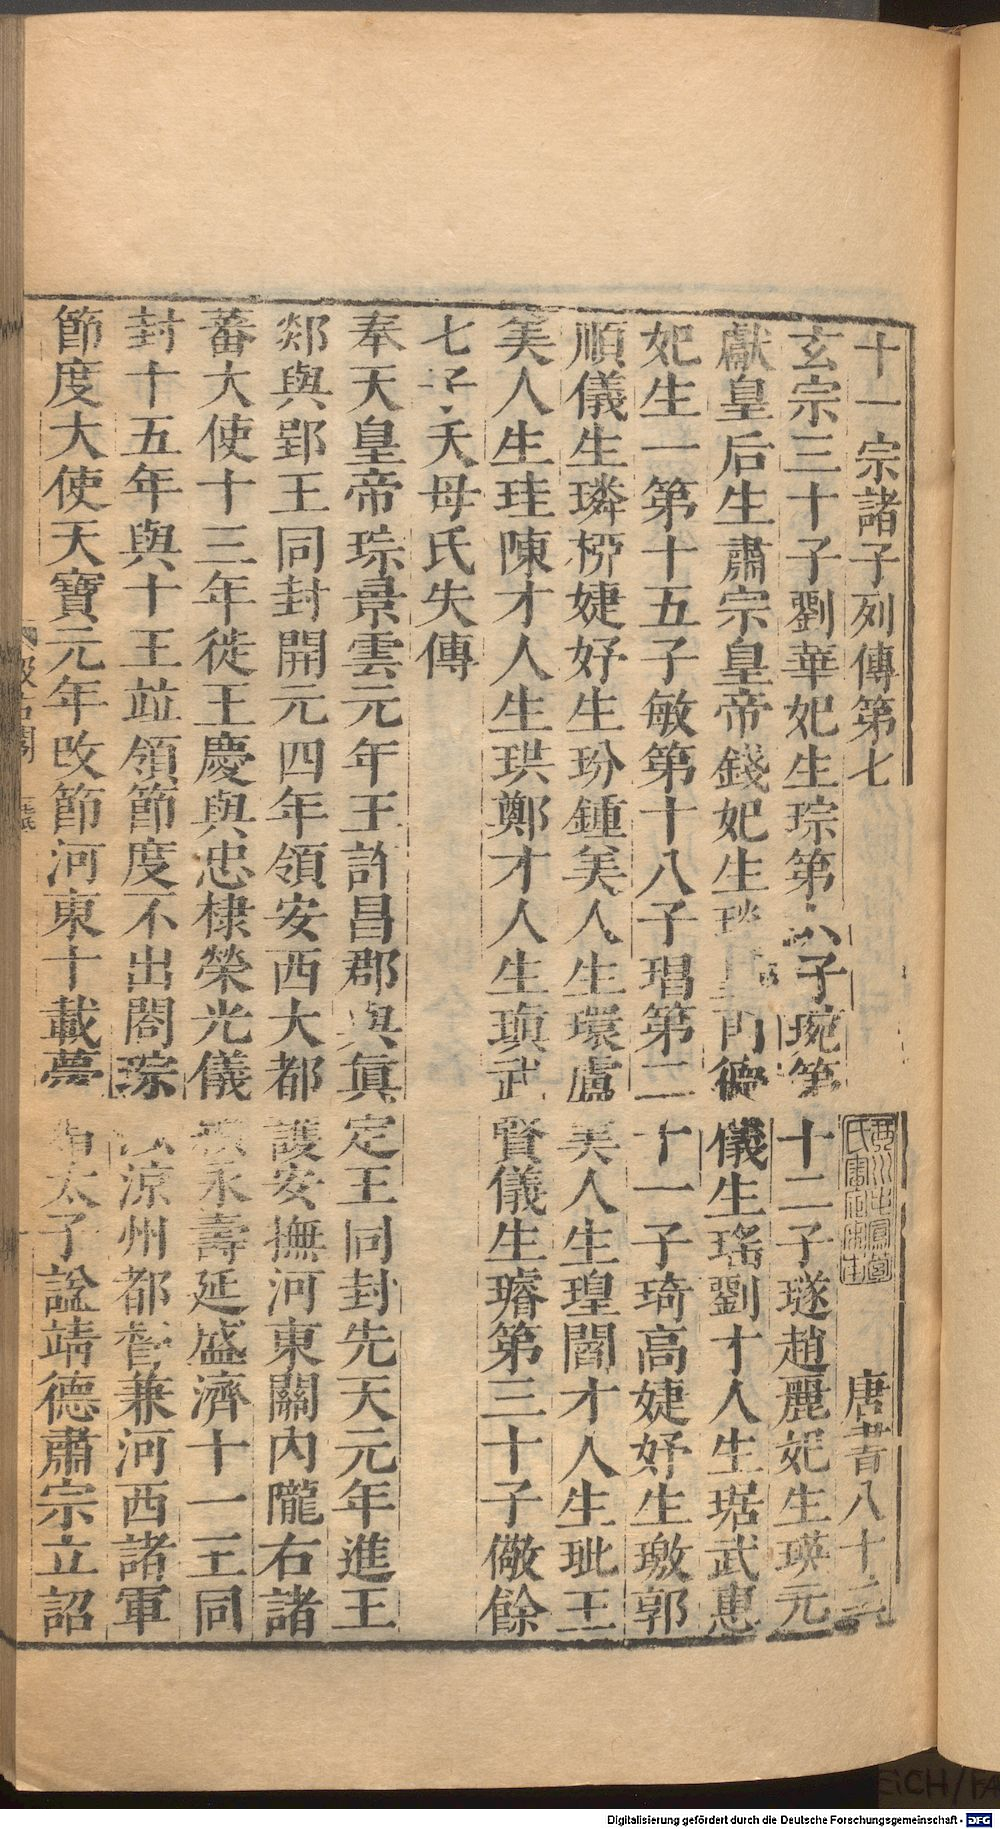 十一宗諸子列傳第七 唐書八十二
玄宗三十子劉華妃生琮第六子琬第十二子璲趙麗妃生瑛元
獻皇后生肅宗皇帝錢妃生琰皇甫德儀生瑤劉才人生琚武惠
妃生一第十五子敏第十八子琩第二十一子琦高婕妤生璬郭
順儀生璘柳婕妤生玢鍾美人生環盧美人生瑝閻才人生玼王
美人生珪陳才人生珙鄭才人生瑱武賢儀生璿第三十子儆餘
七子夭母氏失傳
奉天皇帝琮景雲元年王許昌郡與眞定王同封先天元年進王
郯與郢王同封開元四年領安西大都護安撫河東關內隴右諸
蕃大使十三年徙王慶與忠棣榮光儀潁永壽延盛濟十一王同
封十五年與十王竝領節度不出閤琮以涼州都督兼河西諸軍
節度大使天寶元年改節河東十載薨 太子謚靖德肅宗立詔
汲古閣
Digitalisierung gefördert durch die Deutsche Forschungsgemeinschaft - DFG